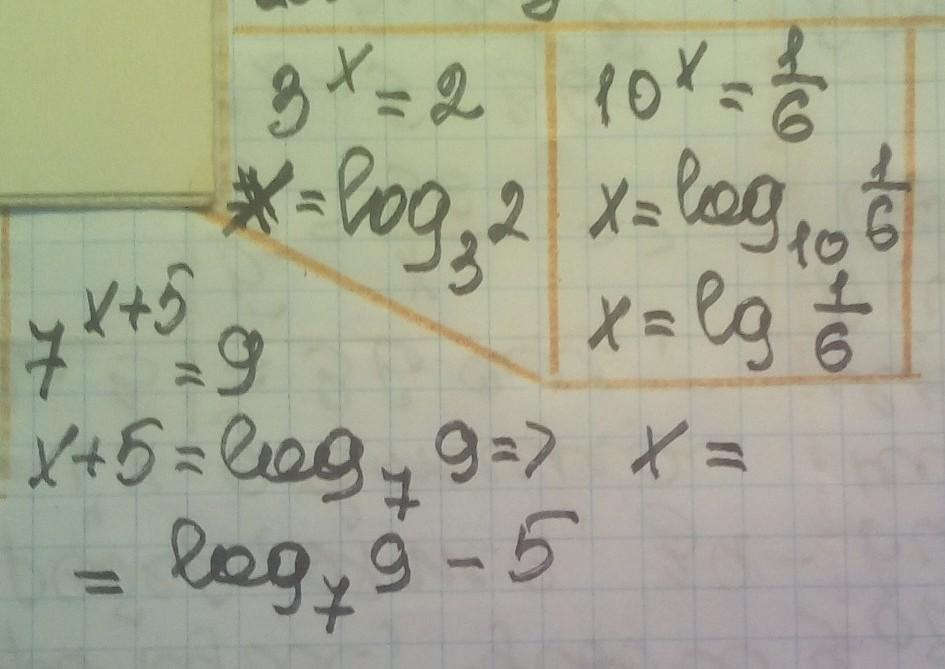 3^x = 2
x = log_3 2
10^x = 1/6
x = log_10 1/6
x = lg 1/6
7^(x+5) = 9
x+5 = log_7 9 => x =
= log_7 9 - 5